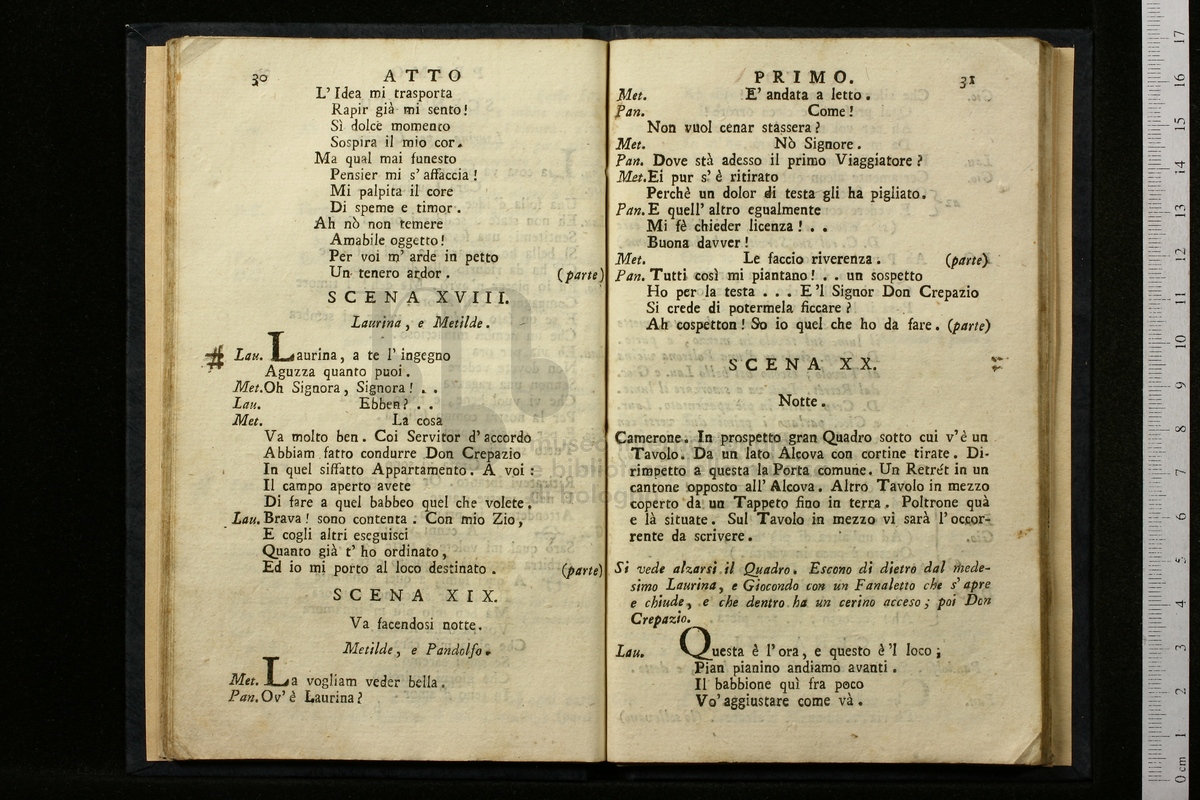 30 ATTO
L' Idea mi trasporta
Rapir già mi sento!
Sì dolce momento
Sospira il mio cor.
Ma qual mai funesto
Pensier mi s' affaccia!
Mi palpita il core
Di speme e timor.
Ah nò non temere
Amabile oggetto!
Per voi m' arde in petto
Un tenero ardor. (parte)
SCENA XVIII.
Laurina, e Metilde.
# Lau. Laurina, a te l' ingegno
Aguzza quanto puoi.
Met. Oh Signora, Signora! . .
Lau. Ebben? . .
Met. La cosa
Va molto ben. Coi Servitor d' accordo
Abbiam fatto condurre Don Crepazio
In quel siffatto Appartamento. A voi:
Il campo aperto avete
Di fare a quel babbeo quel che volete.
Lau. Brava! sono contenta. Con mio Zio,
E cogli altri eseguisci
Quanto già t' ho ordinato,
Ed io mi porto al loco destinato. (parte)
SCENA XIX.
Va facendosi notte.
Metilde, e Pandolfo.
Met. La vogliam veder bella.
Pan. Ov' è Laurina?
PRIMO. 31
Met. E' andata a letto.
Pan. Come!
Non vuol cenar stassera?
Met. Nò Signore.
Pan. Dove stà adesso il primo Viaggiatore?
Met. Ei pur s' è ritirato
Perchè un dolor di testa gli ha pigliato.
Pan. E quell' altro egualmente
Mi fè chieder licenza! . .
Buona davver!
Met. Le faccio riverenza. (parte)
Pan. Tutti così mi piantano! . . un sospetto
Ho per la testa . . . E 'l Signor Don Crepazio
Si crede di potermela ficcare?
Ah cospetton! So io quel che ho da fare. (parte)
SCENA XX.
Notte.
Camerone. In prospetto gran Quadro sotto cui v' è un
Tavolo. Da un lato Alcova con cortine tirate. Di-
rimpetto a questa la Porta comune. Un Retrét in un
cantone opposto all' Alcova. Altro Tavolo in mezzo
coperto da un Tappeto fino in terra. Poltrone quà
e là situate. Sul Tavolo in mezzo vi sarà l' occor-
rente da scrivere.
Si vede alzarsi il Quadro. Escono di dietro dal mede-
simo Laurina, e Giocondo con un Fanaletto che s' apre
e chiude, e che dentro ha un cerino acceso; poi Don
Crepazio.
Lau. Questa è l' ora, e questo è 'l loco;
Pian pianino andiamo avanti.
Il babbione quì fra poco
Vo' aggiustare come và.
0 cm 1 2 3 4 5 6 7 8 9 10 11 12 13 14 15 16 17